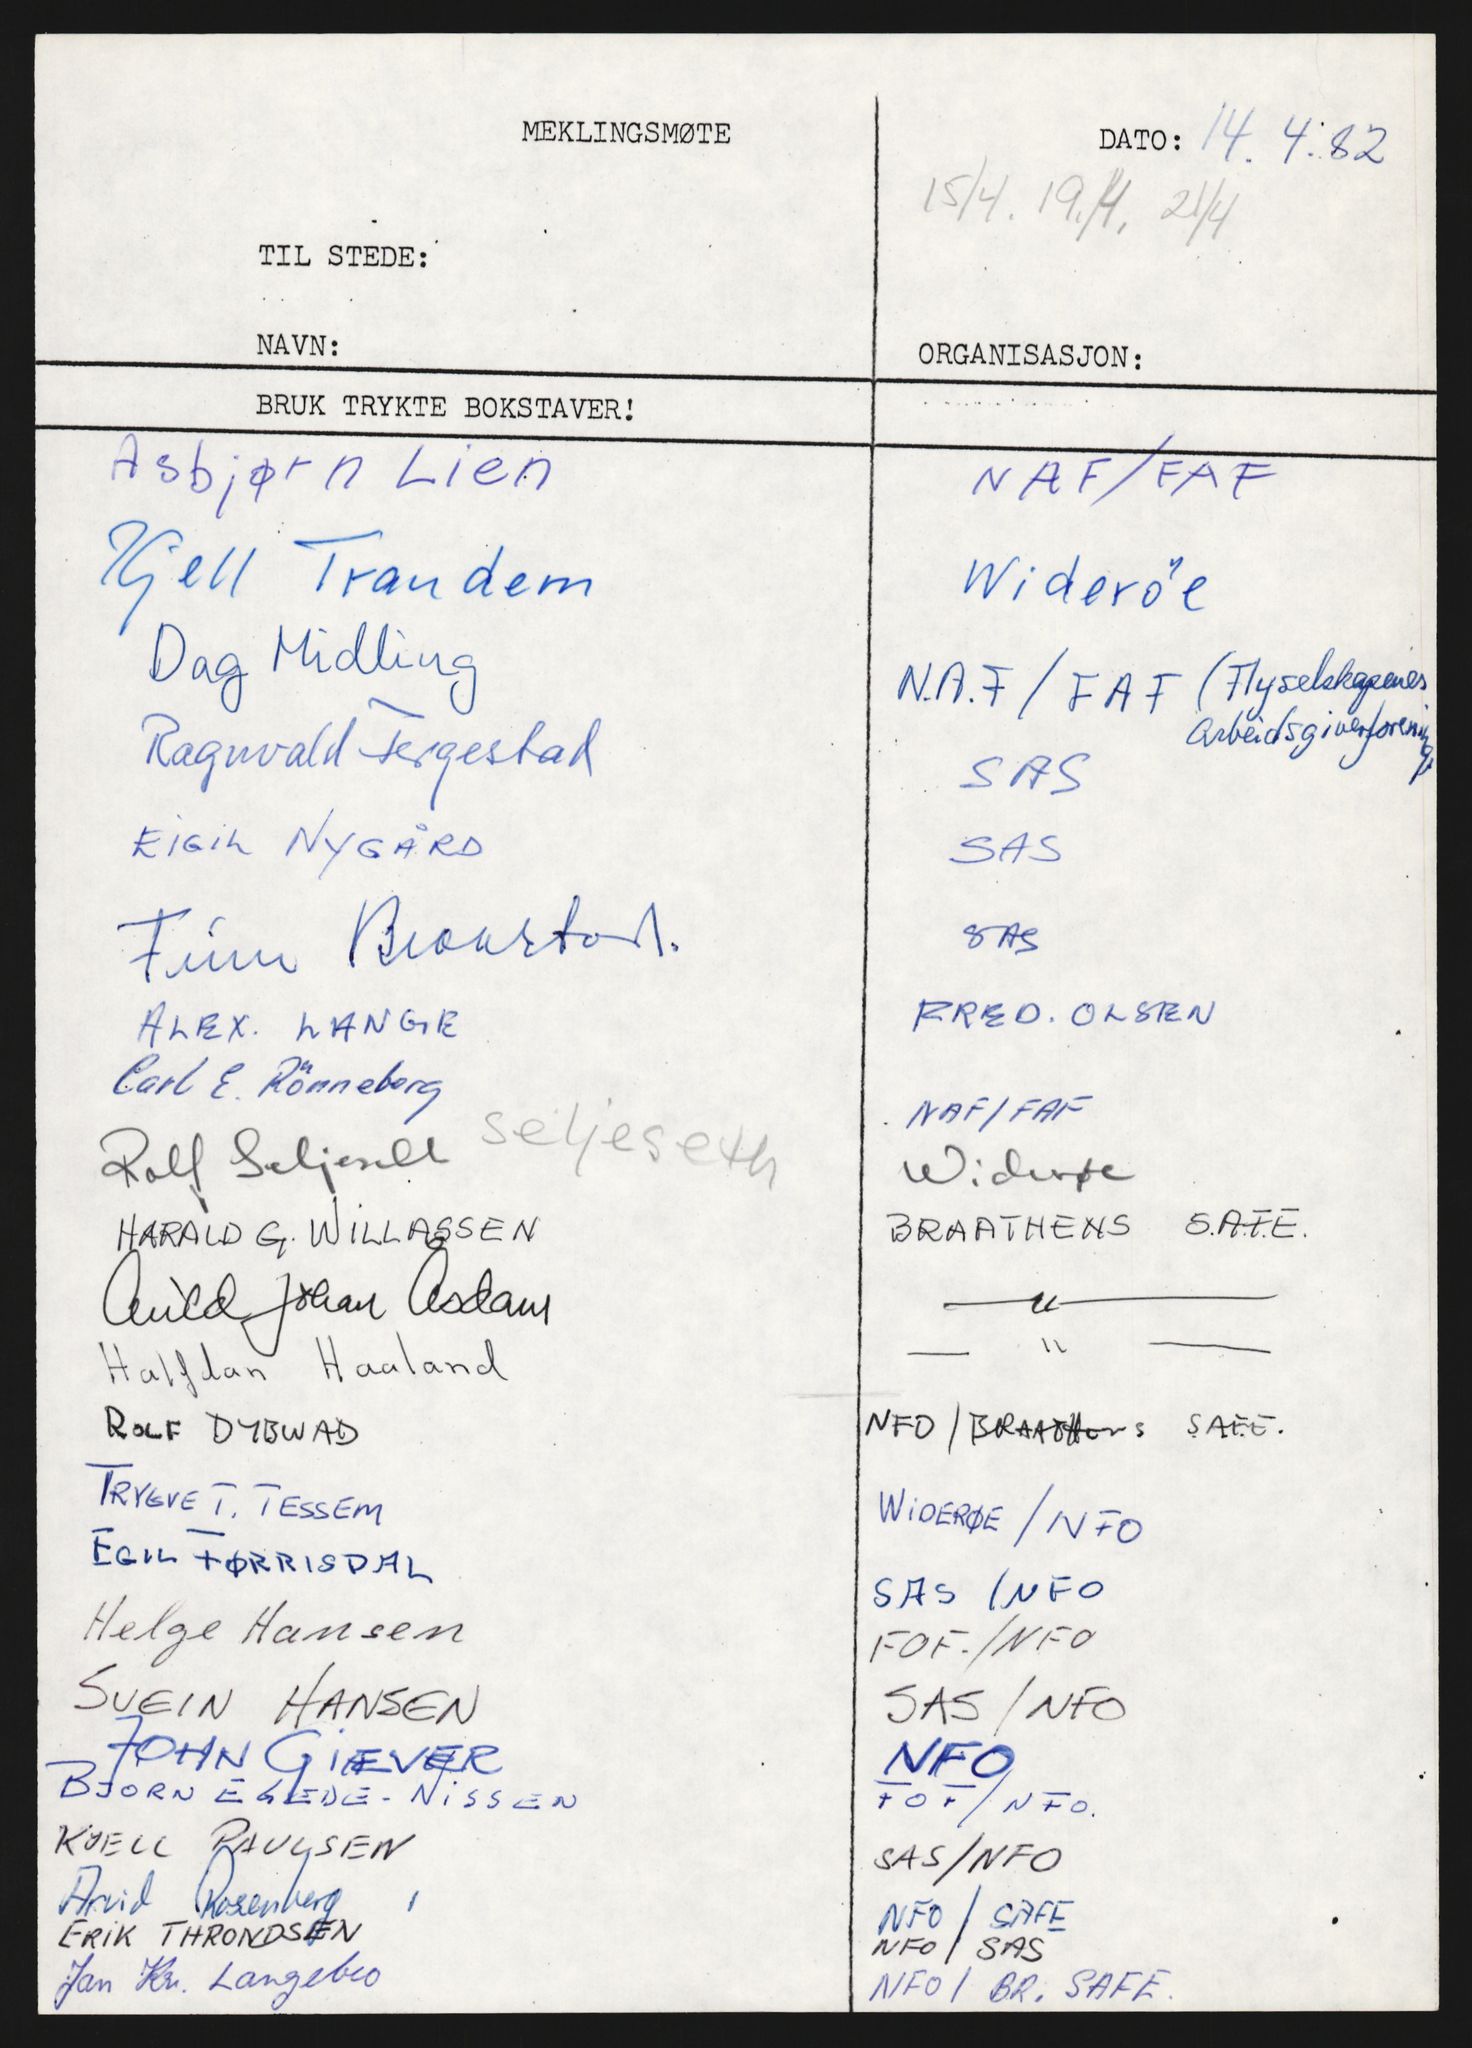 MEKLINGSMØTE DATO: 14.4.82
15/4. 19./4, 21/4
TIL STEDE:
NAVN: ORGANISASJON:
BRUK TRYKTE BOKSTAVER!
Asbjørn Lien NAF/FAF
Kjell Trandem Wideröe
Dag Midling N.A.F / FAF (Flyselskapenes
Arbeidsgiverforening
Ragnvald Fergestad SAS
EIGIL NYGÅRD SAS
Finn SAS
ALEX. LANGE FRED. OLSEN
Carl E. Rönneberg NAF/FAF
Rolf Seljeseth seljeseth Widerøe
HARALD G. WILLASSEN BRAATHENS S.A.F.E.
Johan — " —
Halfdan Haaland — " —
ROLF DYBWAD NFO / BRAATHens S.A.F.E.
TRYGVE T. TESSEM WIDERØE / NFO
EGIL FØRRISDAL SAS / NFO
Helge Hansen FOF./NFO
SVEIN HANSEN SAS / NFO
JOHN GIÆVER NFO
BJORN EGEDE-NISSEN FOF/NFO.
KJELL PAULSEN SAS/NFO
Arvid Rosenberg NFO / SAFE
ERIK THRONDSEN NFO / SAS
Jan Kr. Langebro NFO / BR. SAFE.